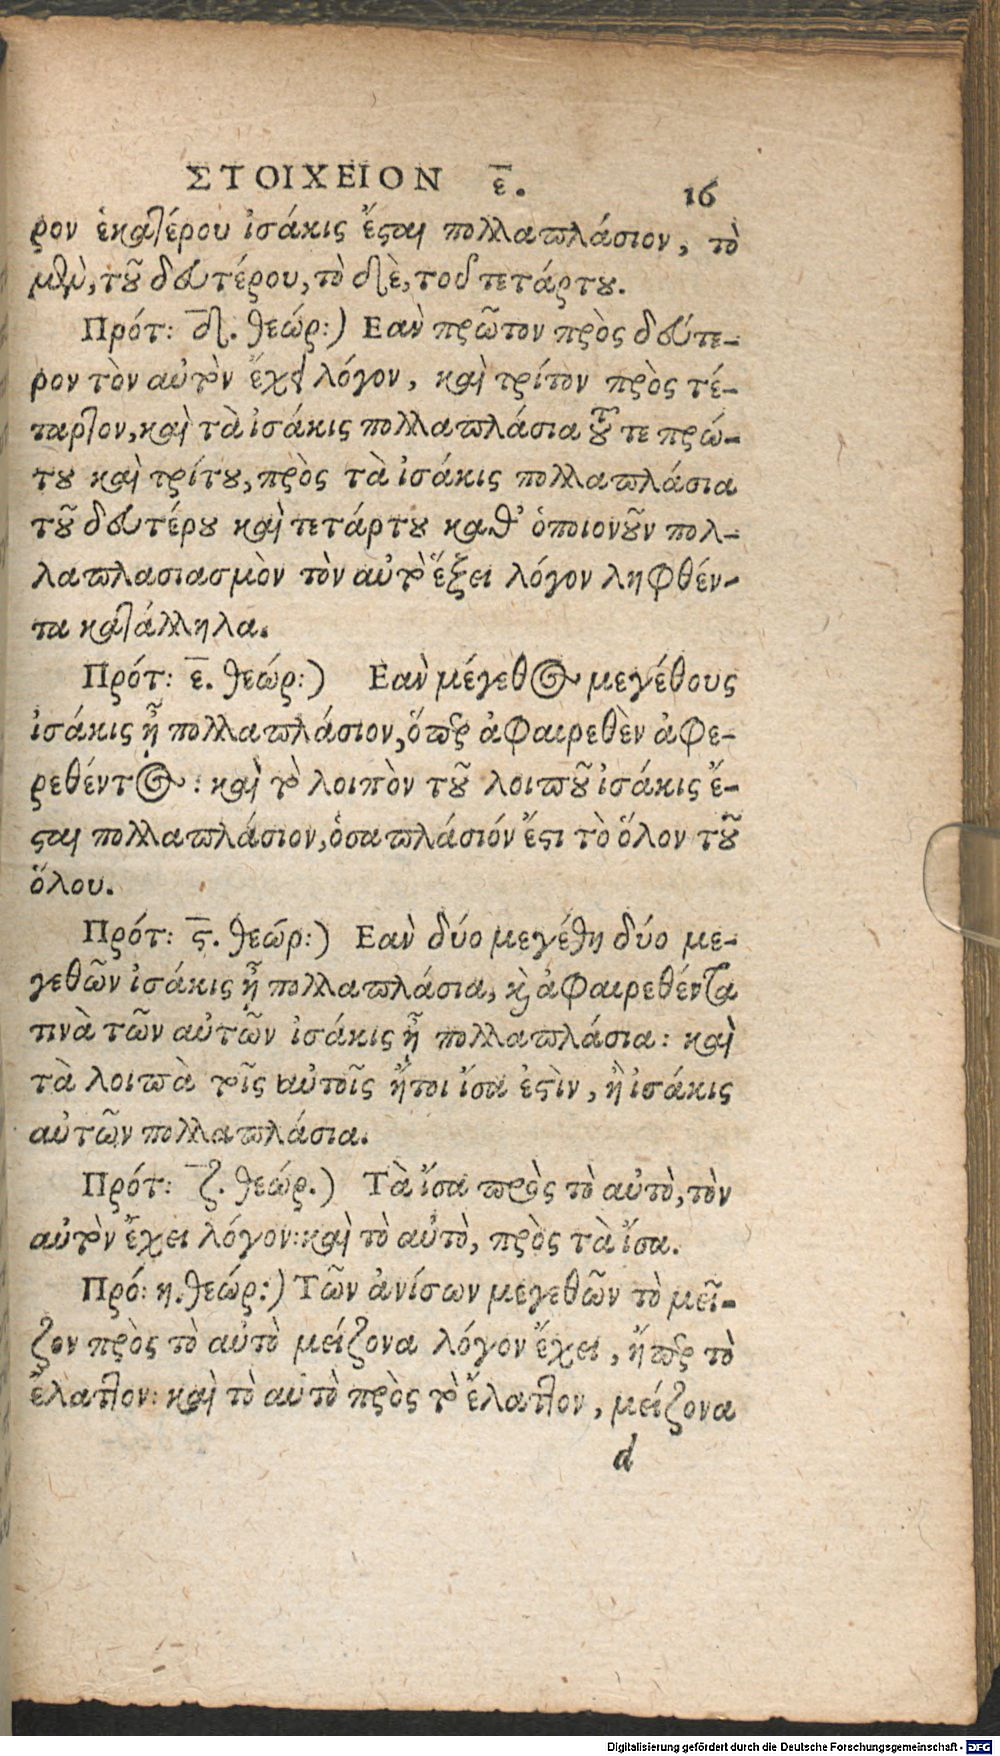 ΣΤΟΙΧΕΙΟΝ ε̅. 16
ρον ἑκατέρου ἰσάκις ἔσται πολλαπλάσιον, τὸ
μὲν, τοῦ δευτέρου, τὸ δὲ, τοῦ τετάρτου.
Πρότ: δ̅. θεώρ:) Εαν πρῶτον πρὸς δεύτε-
ρον τὸν αὐτὸν ἔχῃ λόγον, καὶ τρίτον πρὸς τέ-
ταρτον, καὶ τὰ ἰσάκις πολλαπλάσια τοῦ τε πρώ-
του καὶ τρίτου, πρὸς τὰ ἰσάκις πολλαπλάσια
τοῦ δευτέρου καὶ τετάρτου καθ’ ὁποιονοῦν πολ-
λαπλασιασμὸν τὸν αὐτὸ ἕξει λόγον ληφθέν-
τα κατάλληλα.
Πρότ: ε̅. θεώρ:) Εαν μέγεθος μεγέθους
ἰσάκις ᾖ πολλαπλάσιον, ὅπερ ἀφαιρεθὲν ἀφε-
ρεθέντος: καὶ τὸ λοιπὸν τοῦ λοιποῦ ἰσάκις ἔ-
σται πολλαπλάσιον, ὁσαπλάσιόν ἔστι τὸ ὅλον τοῦ
ὅλου.
Πρότ: ϛ̅. θεώρ:) Εαν δύο μεγέθη δύο με-
γεθῶν ἰσάκις ᾖ πολλαπλάσια, καὶ ἀφαιρεθέντα
τινὰ τῶν αὐτῶν ἰσάκις ᾖ πολλαπλάσια: καὶ
τὰ λοιπὰ τοῖς αὐτοῖς ἤτοι ἴσα ἐστὶν, ἢ ἰσάκις
αὐτῶν πολλαπλάσια.
Πρότ: ζ̅. θεώρ.) Τὰ ἴσα πρὸς τὸ αὐτὸ, τὸν
αὐτὸν ἔχει λόγον: καὶ τὸ αὐτὸ, πρὸς τὰ ἴσα.
Πρό: η. θεώρ:) Τῶν ἀνίσων μεγεθῶν τὸ μεῖ-
ζον πρὸς τὸ αὐτὸ μείζονα λόγον ἔχει, ἤπερ τὸ
ἔλαττον: καὶ τὸ αὐτὸ πρὸς τὸ ἔλαττον, μείζονα
d
Digitalisierung gefördert durch die Deutsche Forschungsgemeinschaft - DFG